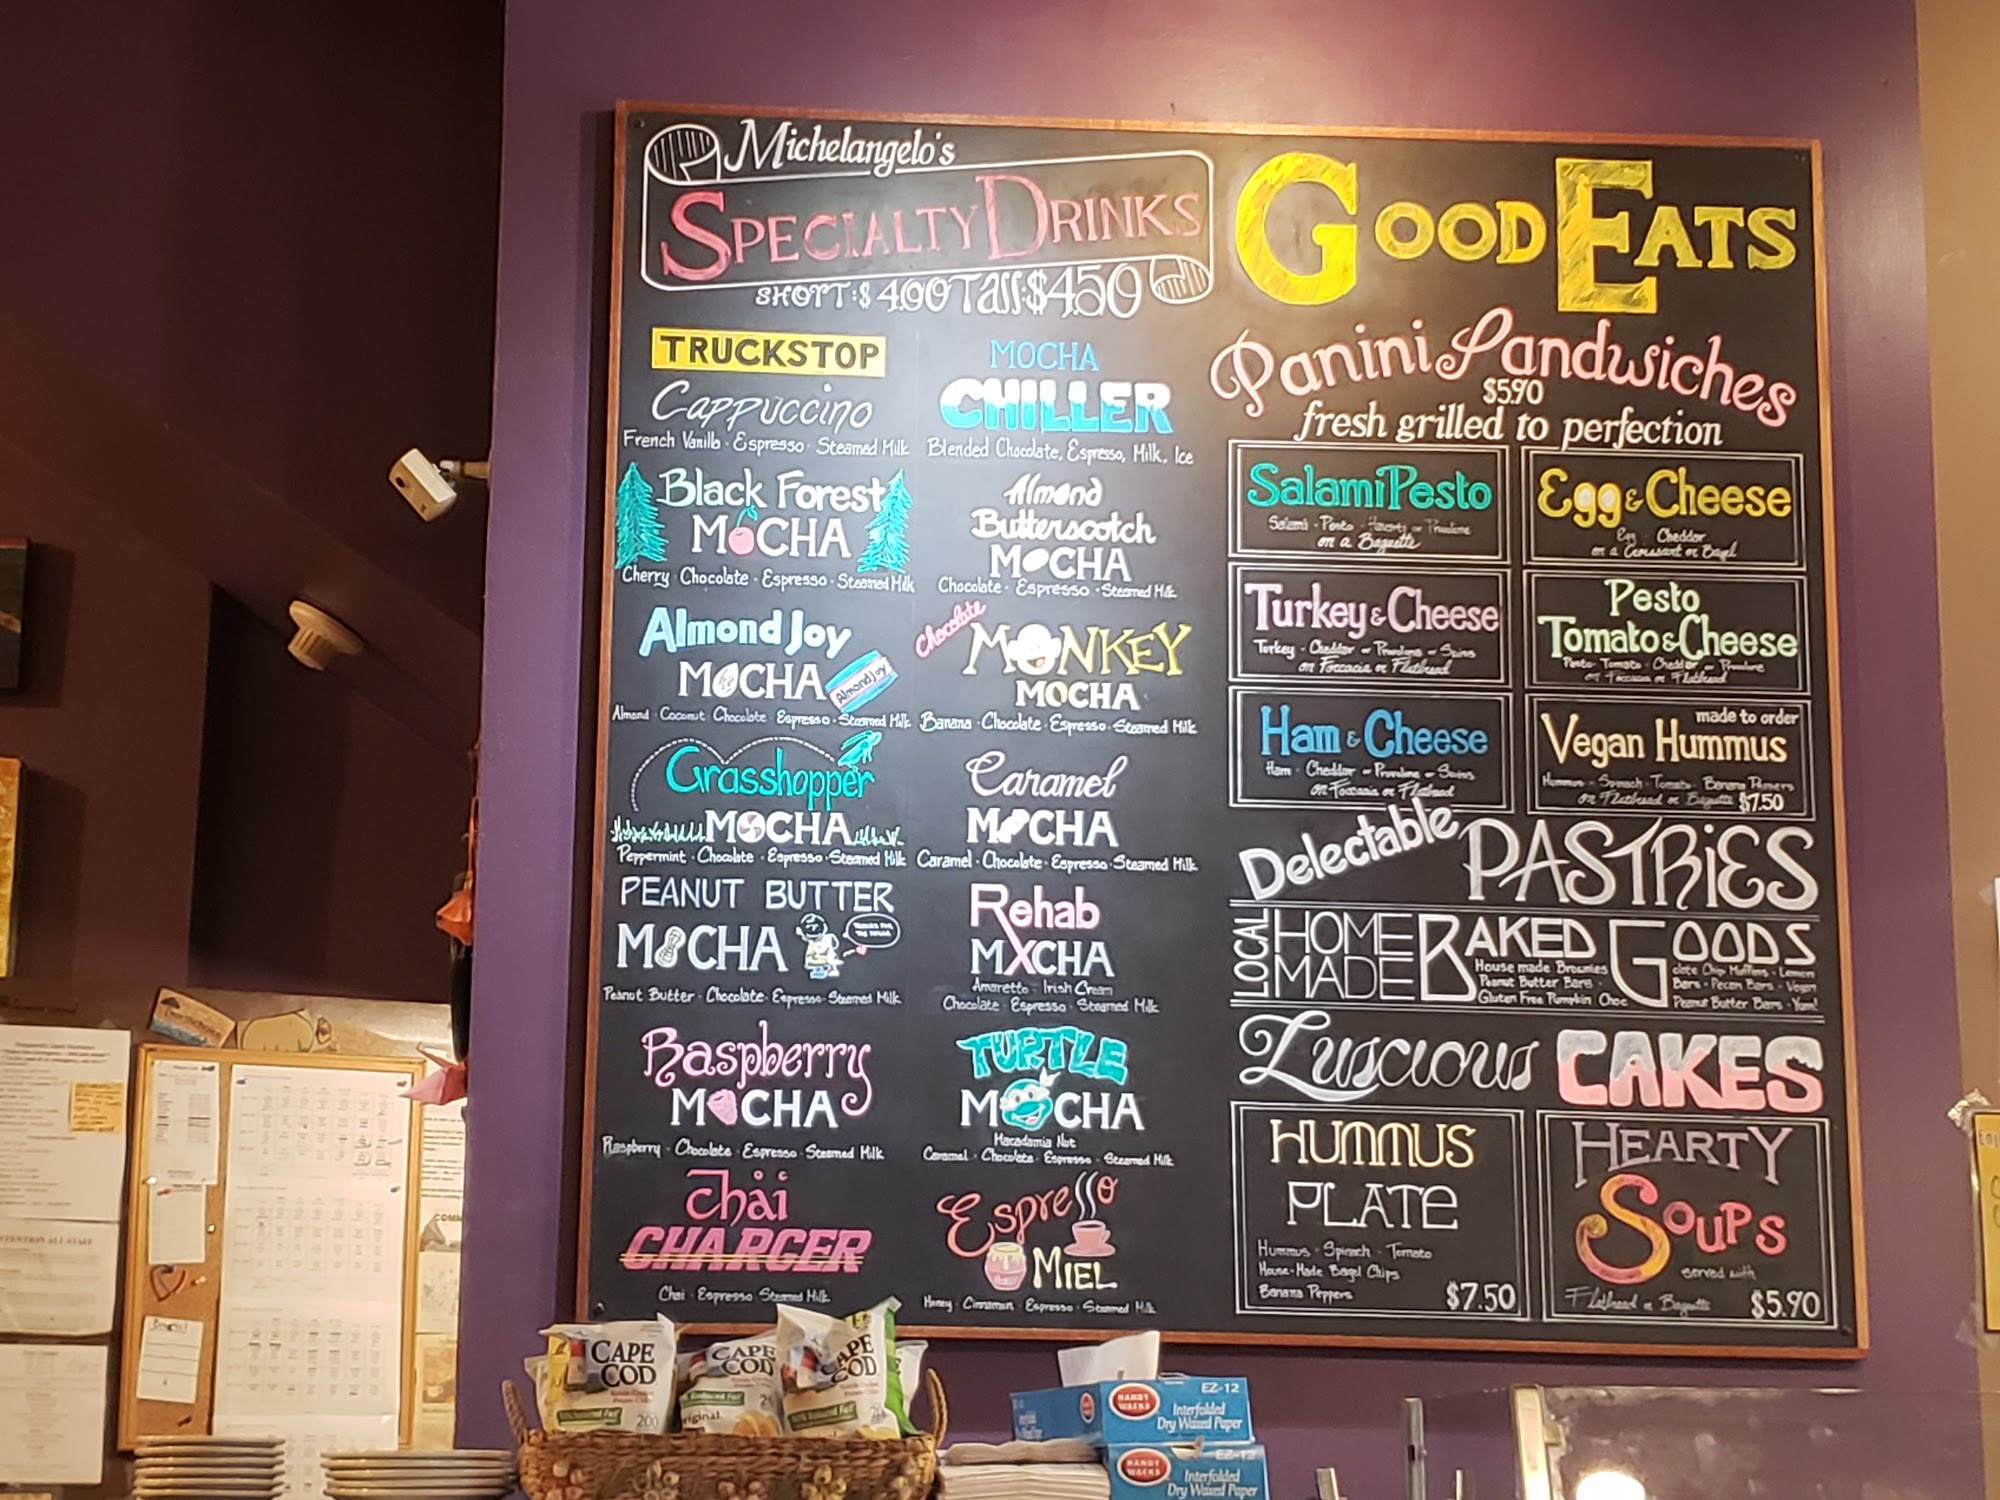 Michelangelo's
SPECIALTY DRINKS
SHORT: $4.00 Tall: $4.50
TRUCKSTOP
Cappuccino
French Vanilla · Espresso · Steamed Milk
Black Forest
MOCHA
Cherry · Chocolate · Espresso · Steamed Milk
Almond Joy
MOCHA
Almond Joy
Almond · Coconut Chocolate Espresso · Steamed Milk
Grasshopper
MOCHA
Peppermint · Chocolate · Espresso · Steamed Milk
PEANUT BUTTER
MOCHA
Peanut Butter · Chocolate · Espresso · Steamed Milk
Raspberry
MOCHA
Raspberry · Chocolate · Espresso · Steamed Milk
Chai
CHARGER
Chai · Espresso Steamed Milk
MOCHA
CHILLER
Blended Chocolate, Espresso, Milk, Ice
Almond
Butterscotch
MOCHA
Chocolate · Espresso · Steamed Milk
Chocolate
MONKEY
MOCHA
Banana · Chocolate · Espresso · Steamed Milk
Caramel
MOCHA
Caramel · Chocolate · Espresso · Steamed Milk
Rehab
MXCHA
Amaretto · Irish Cream
Chocolate · Espresso · Steamed Milk
TURTLE
MOCHA
Macadamia Nut
Caramel · Chocolate · Espresso · Steamed Milk
Espresso
MIEL
Honey · Cinnamon · Espresso · Steamed Milk
GOOD EATS
Panini Sandwiches
$5.90
fresh grilled to perfection
Salami Pesto
Salami · Pesto · Havarti or Provolone
on a Baguette
Egg & Cheese
Egg · Cheddar
on a Croissant or Bagel
Turkey & Cheese
Turkey · Cheddar or Provolone or Swiss
on Foccacia or Flatbread
Pesto
Tomato & Cheese
Pesto · Tomato · Cheddar or Provolone
on Foccacia or Flatbread
Ham & Cheese
Ham · Cheddar or Provolone or Swiss
on Foccacia or Flatbread
made to order
Vegan Hummus
Hummus · Spinach · Tomato · Banana Peppers
on Flatbread or Baguette $7.50
Delectable PASTRiES
LOCAL HOME MADE BAKED GOODS
House made Brownies
Peanut Butter Bars ·
Gluten Free Pumpkin Choc
olate Chip Muffins · Lemon
Bars · Pecan Bars · Vegan
Peanut Butter Bars · Yum!
Luscious CAKES
HUMMUS
PLATE
Hummus · Spinach · Tomato
House-Made Bagel Chips
Banana Peppers
$7.50
HEARTY
SOUPS
served with
Flatbread or Baguette $5.90
CAPE
COD
200
CAPE
COD
Original
CAPE
COD
HANDY
WACKS
EZ-12
Interfolded
Dry Waxed Paper
HANDY
WACKS
EZ-12
Interfolded
Dry Waxed Paper